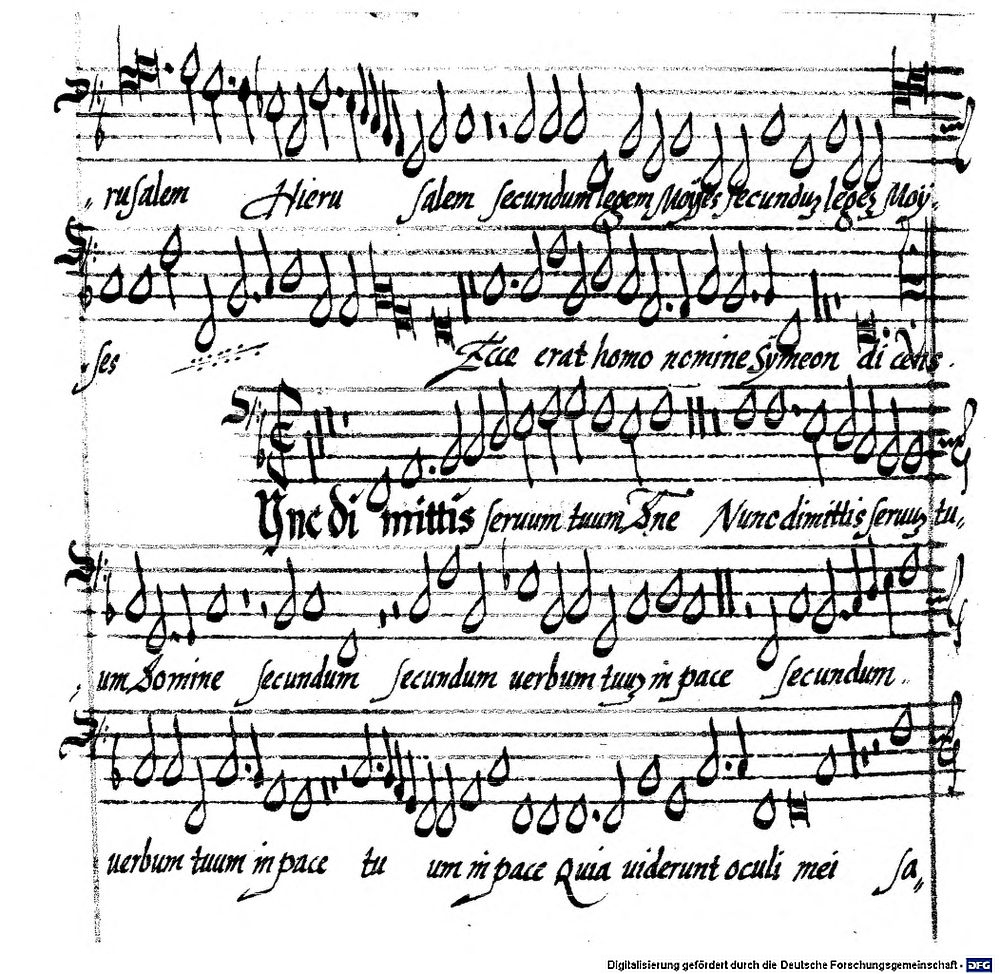 „ rusalem Hieru salem secundum legem Moyses secunduʒ legeʒ Moy„
ses Ecce erat homo nomine Symeon di cens.
Nnc di mittis seruum tuum Dne Nunc dimittis seruuʒ tu„
um Domine secundum secundum uerbum tuuʒ in pace secundum„
uerbum tuum in pace tu um in pace Quia uiderunt oculi mei sa„
Digitalisierung gefördert durch die Deutsche Forschungsgemeinschaft - DFG